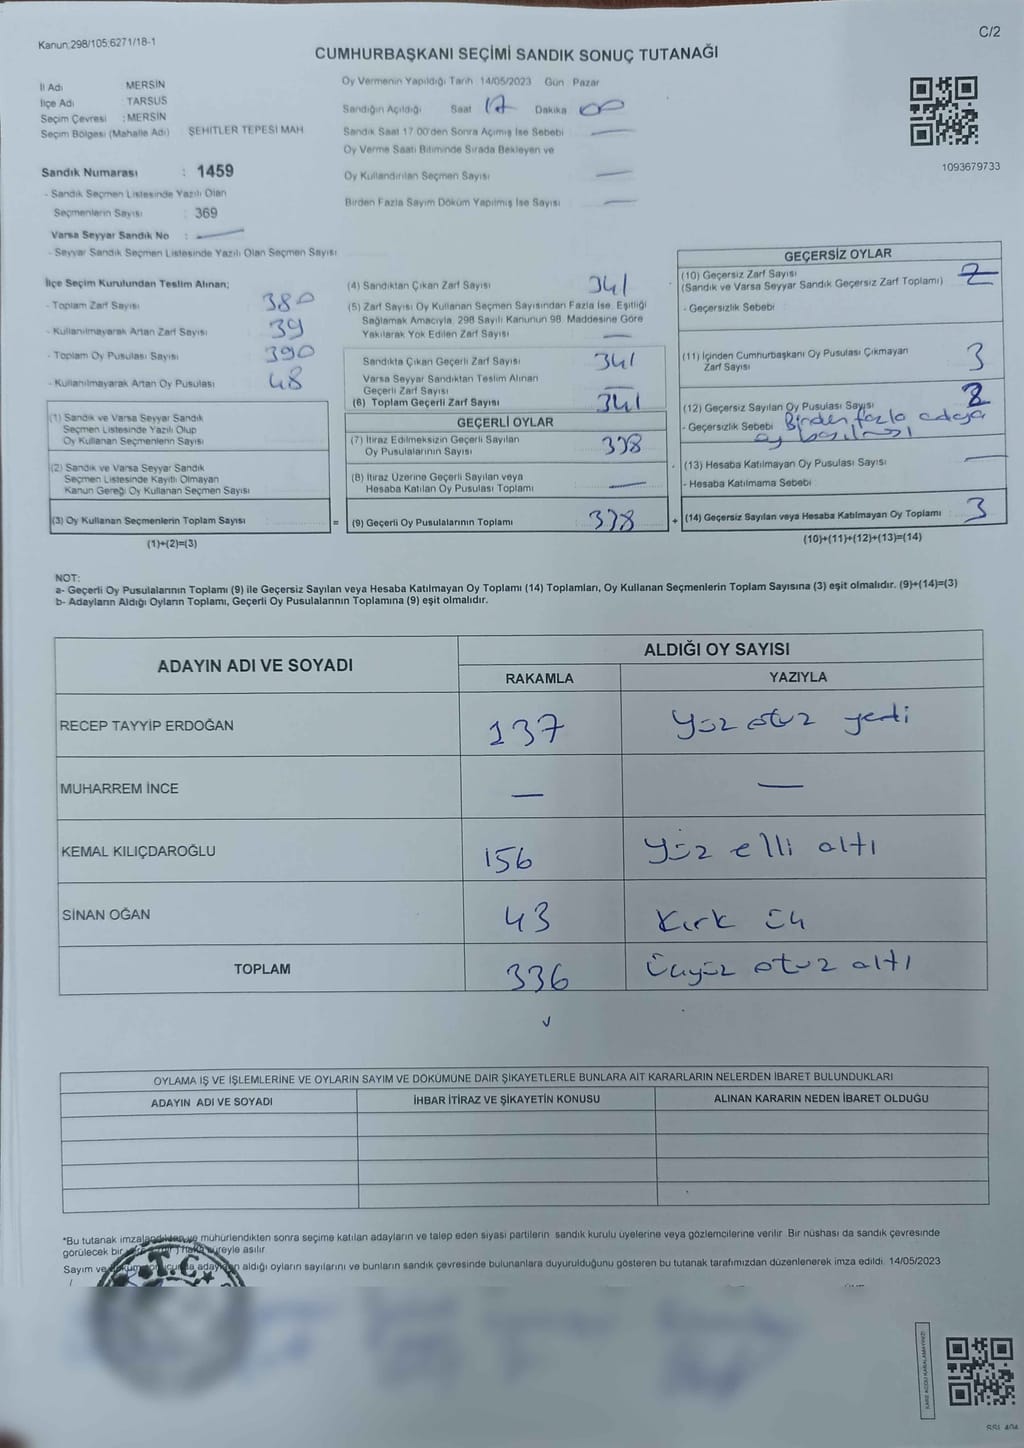 Kanun:298/105;6271/18-1
C/2
CUMHURBAŞKANI SEÇİMİ SANDIK SONUÇ TUTANAĞI
İl Adı : MERSİN
İlçe Adı : TARSUS
Seçim Çevresi : MERSİN
Seçim Bölgesi (Mahalle Adı) ŞEHİTLER TEPESİ MAH.
Oy Vermenin Yapıldığı Tarih 14/05/2023 Gün Pazar
Sandığın Açıldığı Saat 17 Dakika 00
Sandık Saat 17.00'den Sonra Açımış İse Sebebi —
Oy Verme Saati Bitiminde Sırada Bekleyen ve
Oy Kullandırılan Seçmen Sayısı —
Birden Fazla Sayım Döküm Yapılmış İse Sayısı —
1093679733
Sandık Numarası : 1459
- Sandık Seçmen Listesinde Yazılı Olan
Seçmenlerin Sayısı : 369
Varsa Seyyar Sandık No : —
- Seyyar Sandık Seçmen Listesinde Yazılı Olan Seçmen Sayısı :
İlçe Seçim Kurulundan Teslim Alınan;
- Toplam Zarf Sayısı 380
- Kullanılmayarak Artan Zarf Sayısı 39
- Toplam Oy Pusulası Sayısı 390
- Kullanılmayarak Artan Oy Pusulası 48
(1) Sandık ve Varsa Seyyar Sandık
Seçmen Listesinde Yazılı Olup
Oy Kullanan Seçmenlerin Sayısı
(2) Sandık ve Varsa Seyyar Sandık
Seçmen Listesinde Kayıtlı Olmayan
Kanun Gereği Oy Kullanan Seçmen Sayısı
(3) Oy Kullanan Seçmenlerin Toplam Sayısı
(1)+(2)=(3)
=
(4) Sandıktan Çıkan Zarf Sayısı 341
(5) Zarf Sayısı Oy Kullanan Seçmen Sayısından Fazla İse, Eşitliği
Sağlamak Amacıyla, 298 Sayılı Kanunun 98. Maddesine Göre
Yakılarak Yok Edilen Zarf Sayısı —
Sandıkta Çıkan Geçerli Zarf Sayısı 341
Varsa Seyyar Sandıktan Teslim Alınan
Geçerli Zarf Sayısı —
(6) Toplam Geçerli Zarf Sayısı 341
GEÇERLİ OYLAR
(7) İtiraz Edilmeksizin Geçerli Sayılan
Oy Pusulalarının Sayısı 338
(8) İtiraz Üzerine Geçerli Sayılan veya
Hesaba Katılan Oy Pusulası Toplamı —
(9) Geçerli Oy Pusulalarının Toplamı 338
+
GEÇERSİZ OYLAR
(10) Geçersiz Zarf Sayısı
(Sandık ve Varsa Seyyar Sandık Geçersiz Zarf Toplamı)
- Geçersizlik Sebebi
(11) İçinden Cumhurbaşkanı Oy Pusulası Çıkmayan
Zarf Sayısı 3
(12) Geçersiz Sayılan Oy Pusulası Sayısı
- Geçersizlik Sebebi Birden fazla adaya
oy basılması
(13) Hesaba Katılmayan Oy Pusulası Sayısı —
- Hesaba Katılmama Sebebi
(14) Geçersiz Sayılan veya Hesaba Katılmayan Oy Toplamı 3
(10)+(11)+(12)+(13)=(14)
NOT:
a- Geçerli Oy Pusulalarının Toplamı (9) ile Geçersiz Sayılan veya Hesaba Katılmayan Oy Toplamı (14) Toplamları, Oy Kullanan Seçmenlerin Toplam Sayısına (3) eşit olmalıdır. (9)+(14)=(3)
b- Adayların Aldığı Oyların Toplamı, Geçerli Oy Pusulalarının Toplamına (9) eşit olmalıdır.
ADAYIN ADI VE SOYADI
ALDIĞI OY SAYISI
RAKAMLA YAZIYLA
RECEP TAYYİP ERDOĞAN 137 Yüz otuz yedi
MUHARREM İNCE — —
KEMAL KILIÇDAROĞLU 156 Yüz elli altı
SİNAN OĞAN 43 Kırk üç
TOPLAM 336 Üçyüz otuz altı
OYLAMA İŞ VE İŞLEMLERİNE VE OYLARIN SAYIM VE DÖKÜMÜNE DAİR ŞİKAYETLERLE BUNLARA AİT KARARLARIN NELERDEN İBARET BULUNDUKLARI
ADAYIN ADI VE SOYADI İHBAR İTİRAZ VE ŞİKAYETİN KONUSU ALINAN KARARIN NEDEN İBARET OLDUĞU
*Bu tutanak imzalandıktan ve mühürlendikten sonra seçime katılan adayların ve talep eden siyasi partilerin sandık kurulu üyelerine veya gözlemcilerine verilir. Bir nüshası da sandık çevresinde
görülecek bir yere bir hafta süreyle asılır.
Sayım ve döküm sonucunda adayların aldığı oyların sayılarını ve bunların sandık çevresinde bulunanlara duyurulduğunu gösteren bu tutanak tarafımızdan düzenlenerek imza edildi. 14/05/2023
T.C.